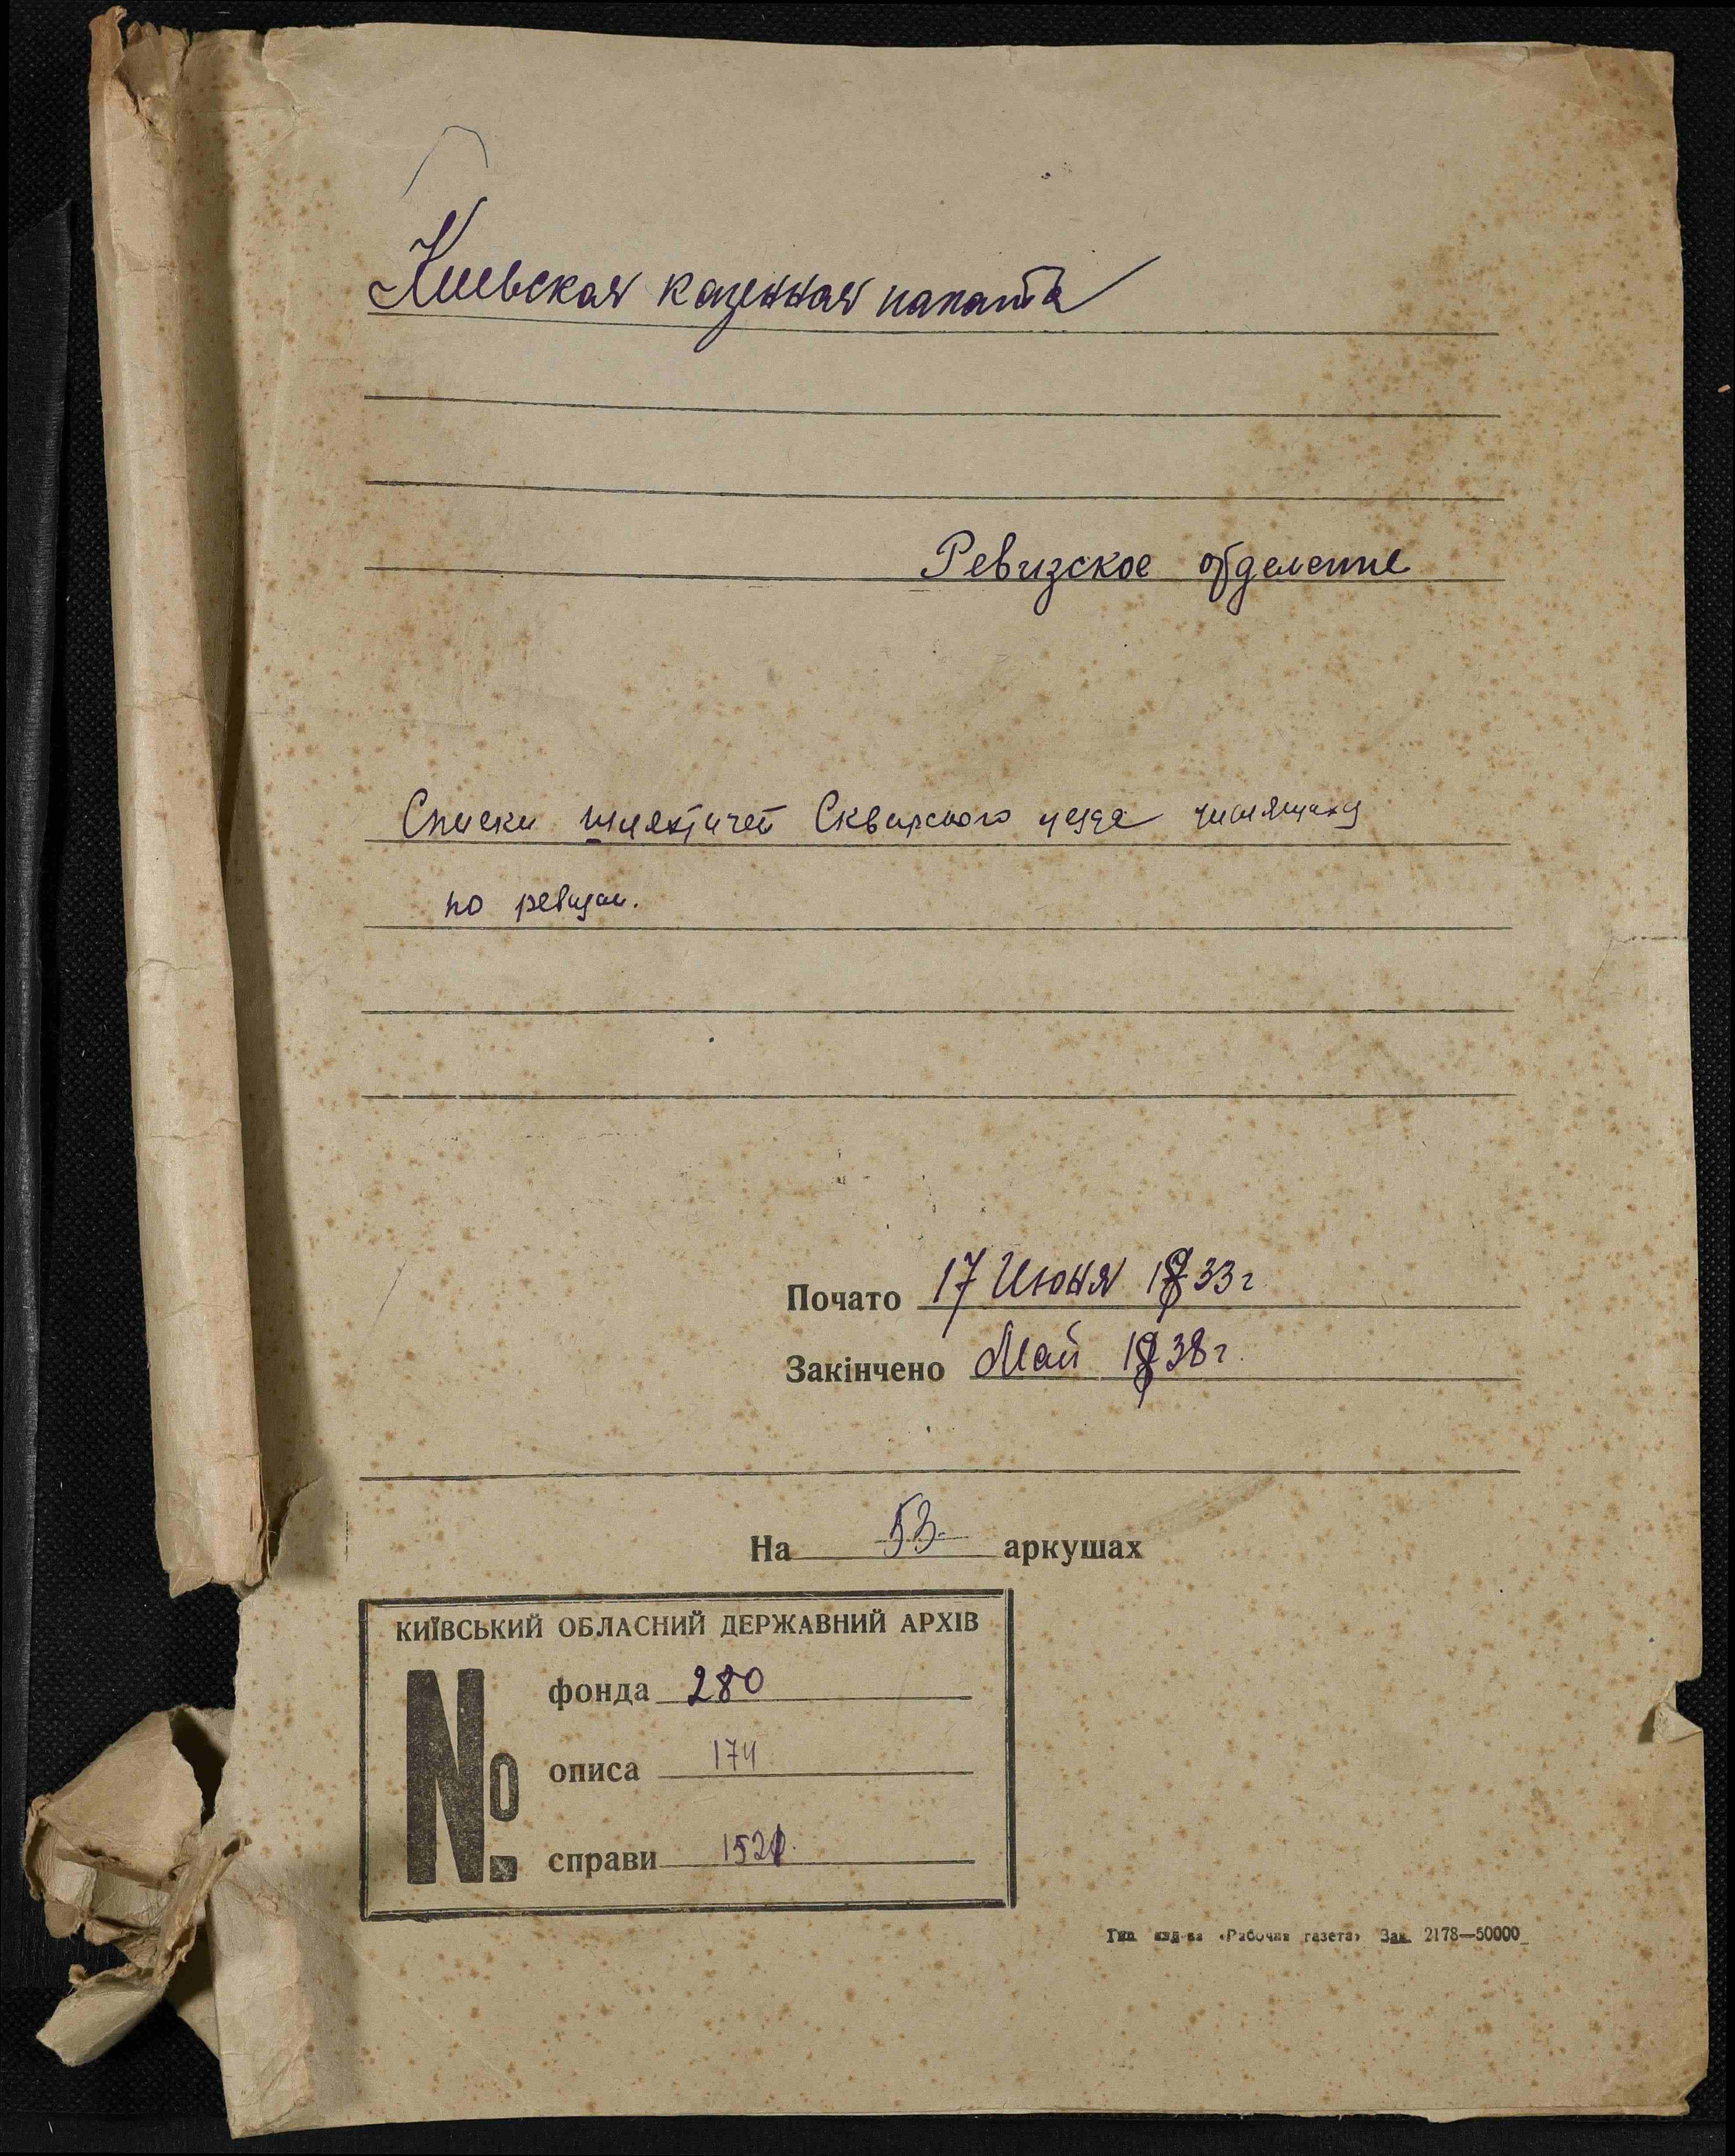 Киевская казенная палата
Ревизское отделение
Списки шляхтичей Сквирского уезда числящихся
по ревизии.
Почато 17 Июня 1833 г
Закінчено Май 1838 г.
На 53 аркушах
КИЇВСЬКИЙ ОБЛАСНИЙ ДЕРЖАВНИЙ АРХІВ
№ фонда 280
описа 174
справи
«Рабочая газета» Зак. 2178—50000